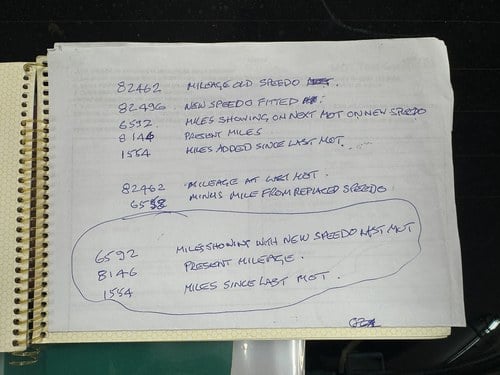 82462 MILEAGE OLD SPEEDO
82496 NEW SPEEDO FITTED
6592 MILES SHOWING ON NEXT MOT ON NEW SPEEDO
8146 PRESENT MILES
1554 MILES ADDED SINCE LAST MOT.
82462 MILEAGE AT LAST MOT.
MINUS MILE FROM REPLACED SPEEDO
6592 MILES SHOWING WITH NEW SPEEDO PAST MOT
8146 PRESENT MILEAGE.
1554 MILES SINCE LAST MOT.